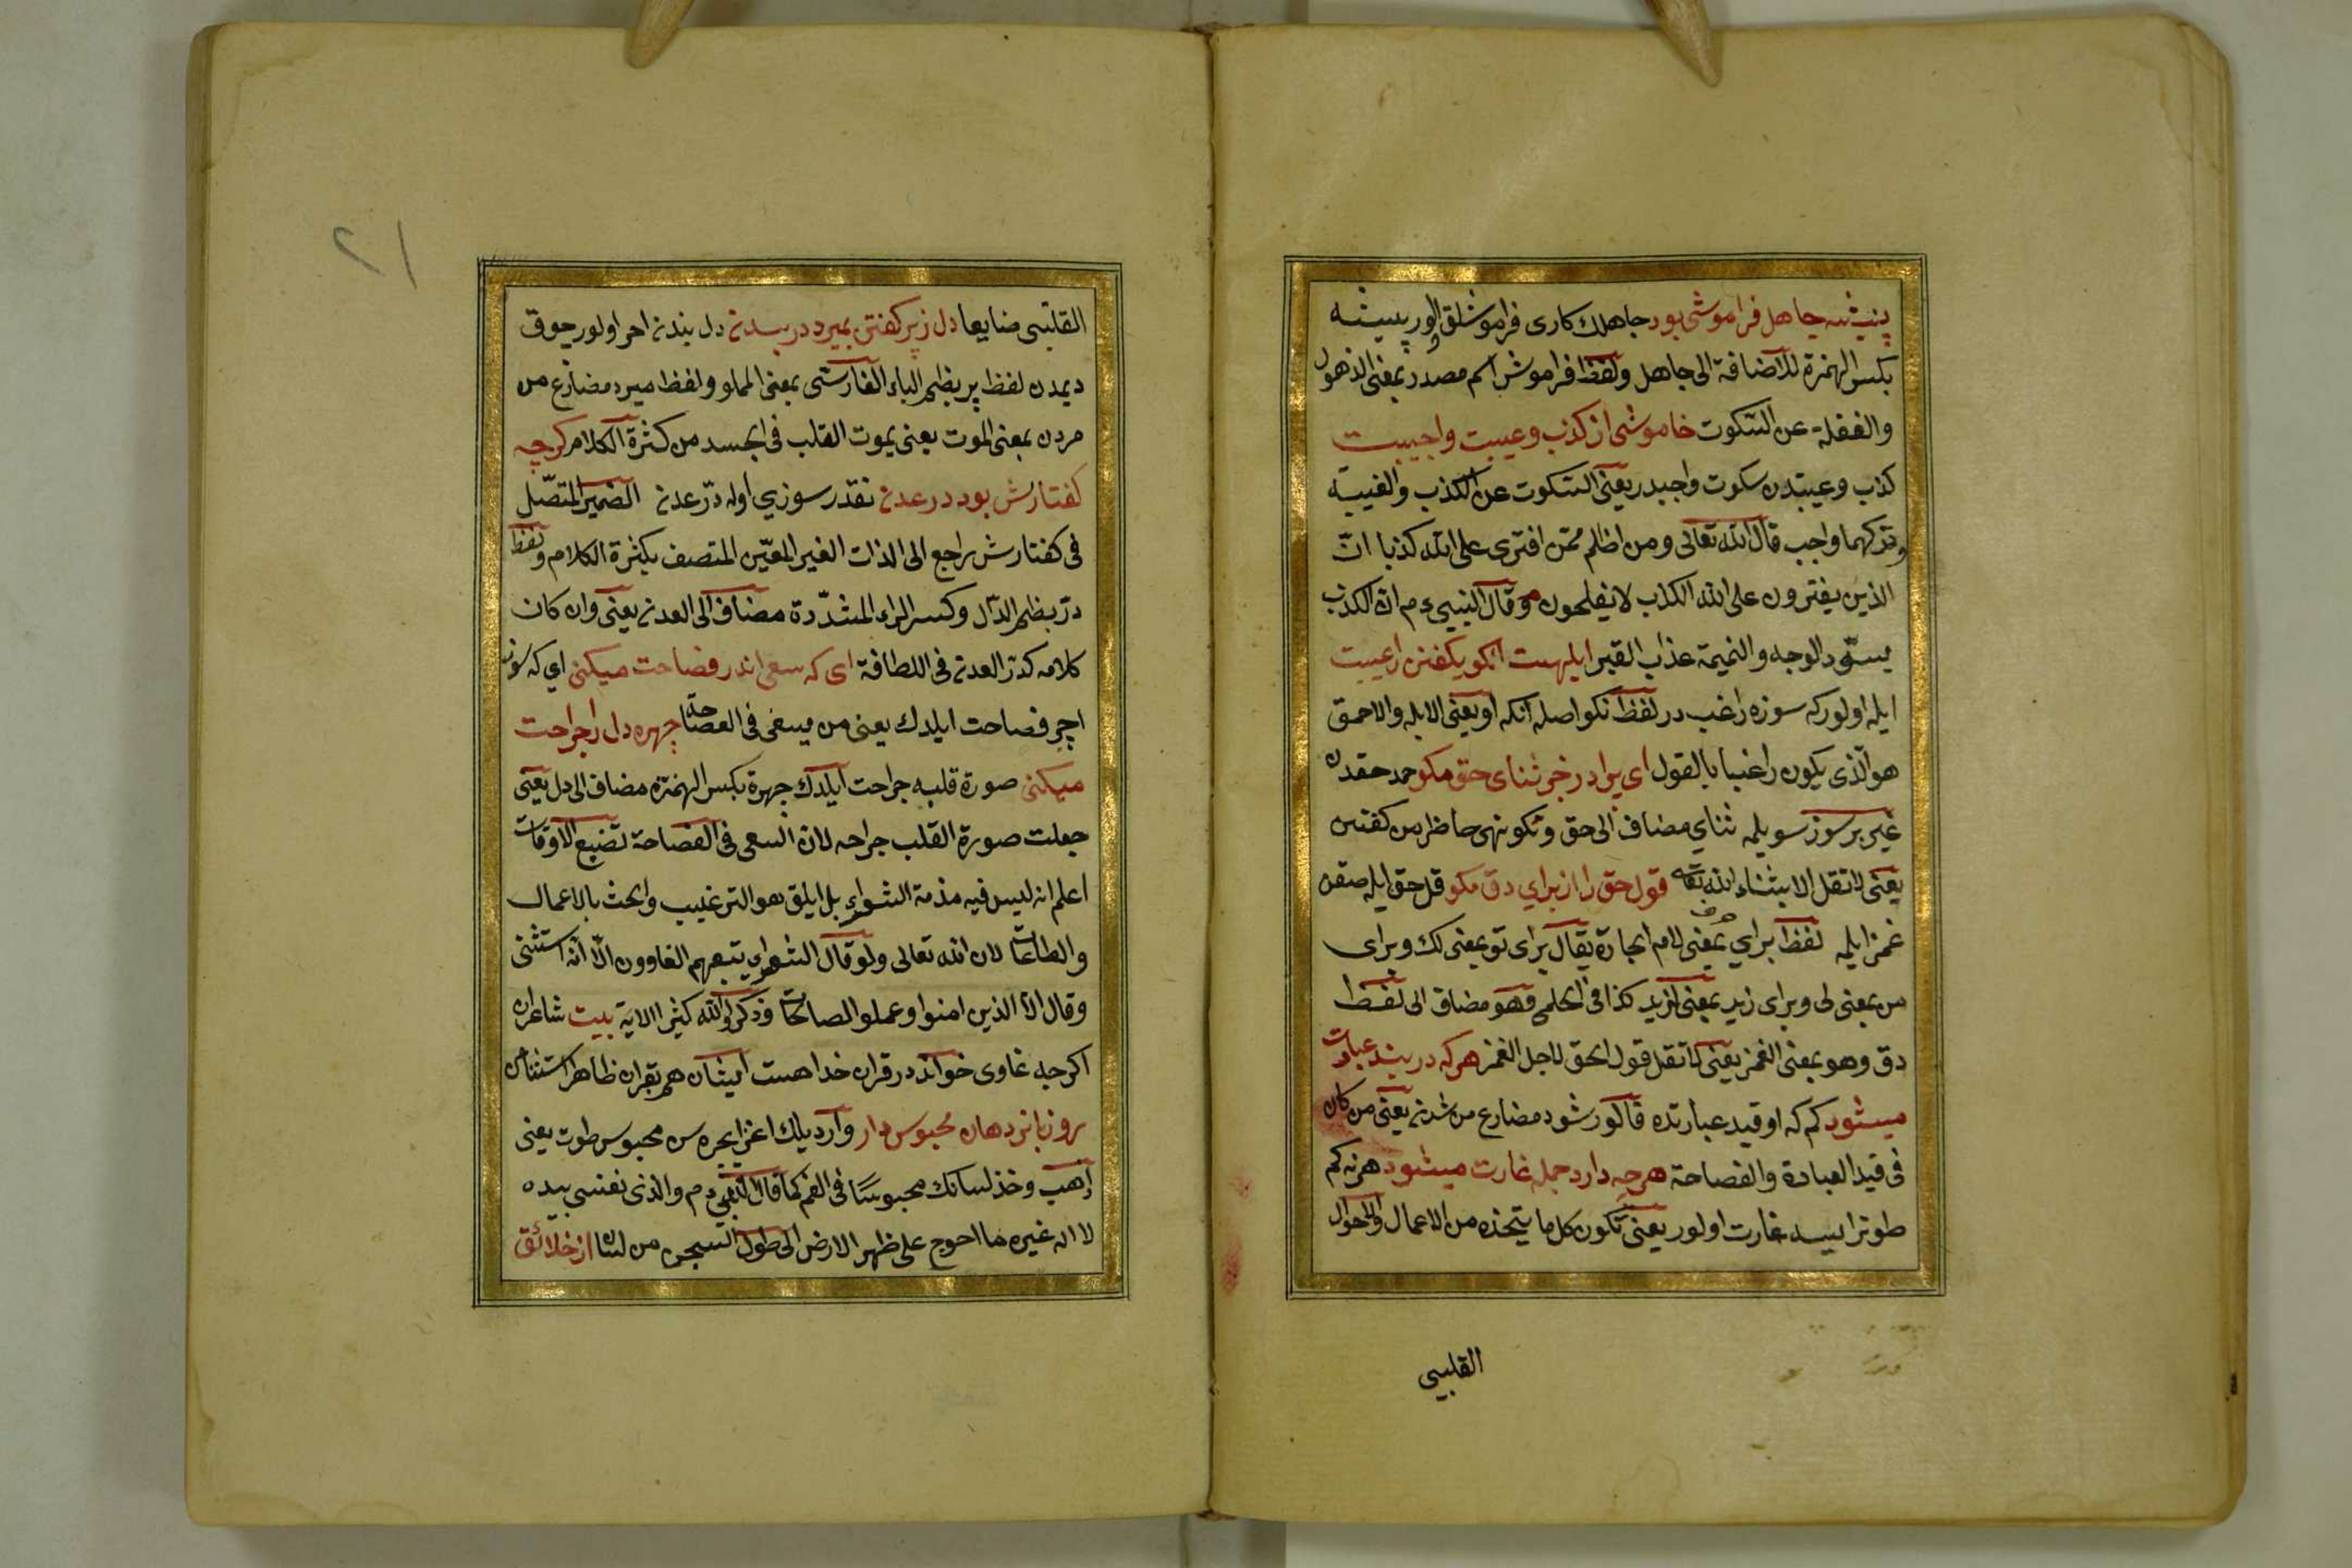 پیشه جاهل فراموشی بود جاهلك كاری فراموشلق اولور پیشه
بكسر الهمزة للاضافة الى جاهل ولفظ فراموش اسم مصدر بمعنى الذهول
والغفلة عن السكوت خاموشی از كذب و غیبت واجبست
كذب وغیبتدن سكوت واجبدر یعنی السكوت عن الكذب والغیبة
وتركهما واجب قال الله تعالى ومن اظلم ممن افترى على الله كذبا ان
الذین یفترون على الله الكذب لا یفلحون وقال النبی ع م ان الكذب
یسود الوجه والنمیمة عذاب القبر ابلهست انكو بكفتن راغبست
ابله اولور كه سوزه راغب در لفظ انكو اصله آنكه او یعنی الابله والاحمق
هو الذی یكون راغبا بالقول ای برادر جز ثنای حق مكو حمد حقدن
غیر بر سوز سویلمه ثنای مضاف الى حق ومكو نهی حاضر من كفتن
یعنی لا تقل الا بثناء الله تعالى قول حق را از برای دق مكو قل حق ایله صقن
غمز ایله لفظ برای بمعنى لام الجارة یقال برای تو بمعنى لك وبرای
من بمعنى لی وبرای زید بمعنى لزید كذا فی الحلمی فهو مضاف الى لفظ
دق وهو بمعنى الغمز یعنی لا تقل قول الحق لاجل الغمز هركه در بند عبارت
میشود كم كه او قید عبارتده قالور شود مضارع من شدن یعنی من كان
فی قید العبادة والفصاحة هرچه دارد جمله غارت میشود هر نه كم
طوتر ایسه غارت اولور یعنی تكون كل ما یتخذه من الاعمال والاحوال
القلبی
القلبی ضایعا دل ز پر كفتن بمیرد در بدن دل بدنده احر اولور چوق
دیمدن لفظ پر بضم الباء الفارسی بمعنى المملو ولفظ میرد مضارع من
مردن بمعنى الموت یعنی یموت القلب فی الجسد من كثرة الكلام كرچه
كفتارش بود در عدن نقدر سوزی اوله در عدن الضمیر المتصل
فی كفتارش راجع الى الذات الغیر المعین المتصف بكثرة الكلام ولفظ
در بضم الدال وكسر الراء المشددة مضاف الى العدن یعنی وان كان
كلامه كدر العدن فی اللطافة ای كه سعی اندر فصاحت میكنی ای كه سوز
اچر فصاحت ایلدك یعنی من یسعى فی الفصاحة چهره دل را جراحت
میكنی صورة قلبه جراحت ایلدك چهرة بكسر الهمزه مضاف الى دل یعنی
جعلت صورة القلب جراحه لان السعی فی الفصاحة تضیع الاوقات
اعلم انه لیس فیه مذمة الشعراء بل ایلیق هو الترغیب والحث بالاعمال
والطاعات لان الله تعالى ولو قال الشعراء یتبعهم الغاوون الا انه استثنى
وقال الا الذین امنوا وعملوا الصالحات وذكروا الله كثیرا الایة بیت شاعران
اكرچه غاوی خواند در قران خدا هست ایشان هم بقران ظاهر استثنا
رو زبانرا در دهان محبوس دار وار دیلك اغز ایچره سن محبوس طوت یعنی
اذهب وخذ لسانك محبوسا فی الفم كما قال النبی ع م والذی نفسی بیده
لا اله غیره ما احوج على ظهر الارض الى طول السجن من لسان از خلائق
٢١